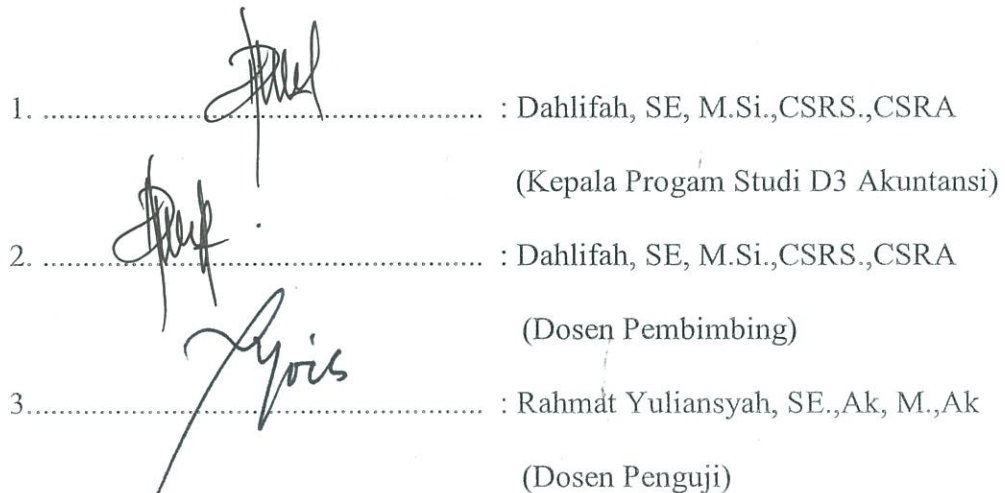 1. .................................................. : Dahlifah, SE, M.Si.,CSRS.,CSRA
(Kepala Progam Studi D3 Akuntansi)
2. .................................................. : Dahlifah, SE, M.Si.,CSRS.,CSRA
(Dosen Pembimbing)
3.................................................. : Rahmat Yuliansyah, SE.,Ak, M.,Ak
(Dosen Penguji)